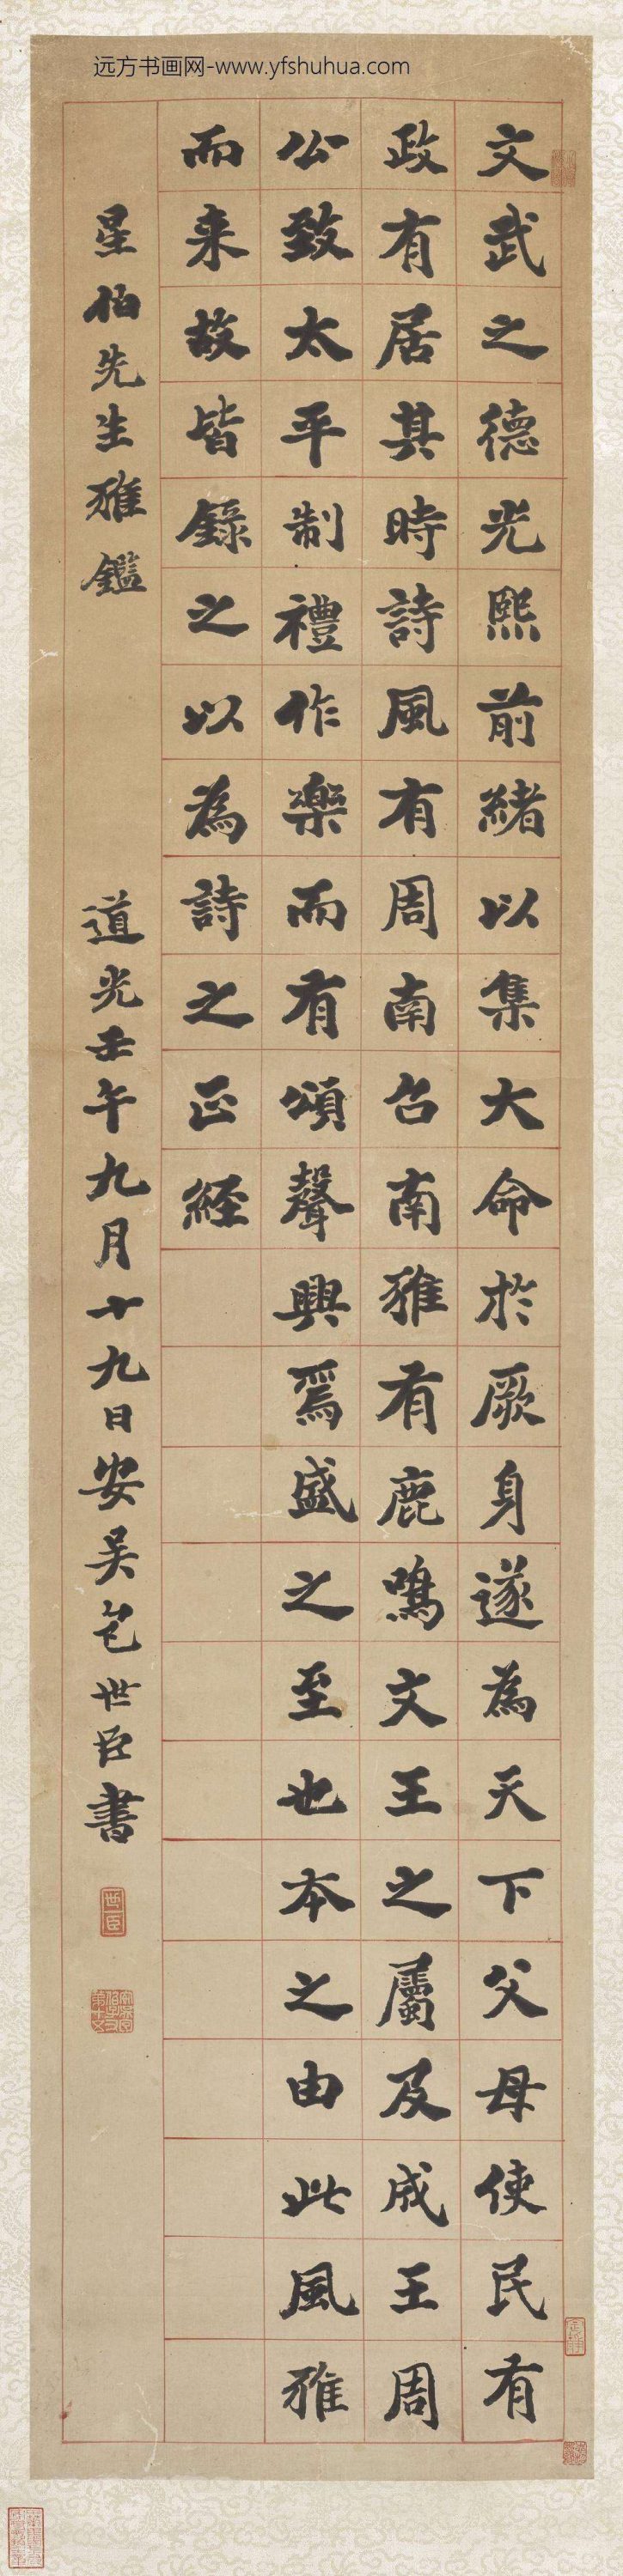 远方书画网-www.yfshuhua.com
文武之德光熙前緒以集大命於厥身遂為天下父母使民有
政有居其時詩風有周南召南雅有鹿鳴文王之屬及成王周
公致太平制禮作樂而有頌聲興焉盛之至也本之由此風雅
而来故皆錄之以為詩之正経
星伯先生雅鑑
道光壬午九月十九日安吴包世臣書
世臣